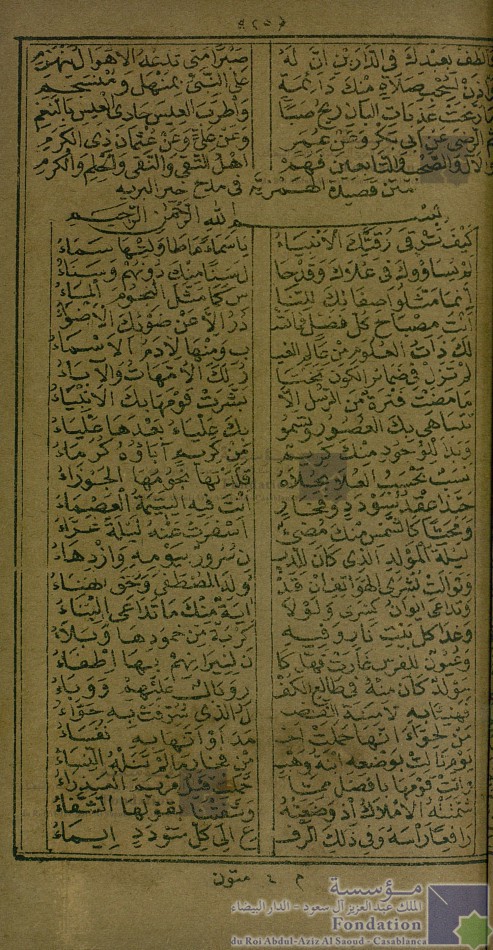 ﴿٢٥﴾
والطف بعبدك في الدارين ان له صبرا متى تدعه الاهوال ينهزم
وأذن لسحب صلاة منك دائمة على النبي بمنهل ومنسجم
ما رنحت عذبات البان ريح صبا وأطرب العيس حادي العيس بالنغم
ثم الرضى عن أبي بكر وعن عمر وعن علي وعن عثمان ذي الكرم
والآل والصحب والتابعين فهم اهل التقى والنقى والحلم والكرم
متن قصيدة الهمزية في مدح خير البريه
بسم الله الرحمن الرحيم
كيف ترقى رقيك الانبياء يا سماء ما طاولتها سماء
لم يساووك في علاك وقد حا ل سنا منك دونهم وسناء
إنما مثلوا صفاتك للنا س كما مثل النجوم الماء
أنت مصباح كل فضل فما تصـ در الا عن ضوئك الاضواء
لك ذات العلوم من عالم الغيـ ب ومنها لادم الاسماء
لم تزل في ضمائر الكون تختا ر لك الامهات والاباء
ما مضت فترة من الرسل الا بشرت قومها بك الانبياء
تتباهى بك العصور وتسمو بك علياء بعدها علياء
وبدا للوجود منك كريم من كريم آباؤه كرماء
نسب تحسب العلا بحلاه قلدتها نجومها الجوزاء
حبذا عقد سودد وفخار أنت فيه اليتيمة العصماء
ومحيا كالشمس منك مضيء اسفرت عنه ليلة غراء
ليلة المولد الذي كان للديـ ن سرور بيومه وازدهاء
وتوالت بشرى الهواتف ان قد ولد المصطفى وحق الهناء
وتداعى ايوان كسرى ولولا اية منك ما تداعى البناء
وغدا كل بيت نار وفيه كربة من خمودها وبلاء
وعيون للفرس غارت فهل كا ن لنيرانهم بها إطفاء
مولد كان منه في طالع الكفـ ر وبال عليهم ووباء
فهنيئا به لامنة الفضـ ل الذي شرفت به حواء
من لحواء انها حملت احـ مد أو أنها به نفساء
يوم نالت بوضعه ابنة وهب من فخار ما لم تنله النساء
وأتت قومها بافضل مما حملت قبل مريم العذراء
شمتته الاملاك اذ وضعته وشفتنا بقولها الشفاء
رافعا رأسه وفي ذلك الرفـ ع الى كل سودد ايماء
م ٤ متون
مؤسسة
الملك عبد العزيز آل سعود - الدار البيضاء
Fondation
du Roi Abdul-Aziz Al Saoud - Casablanca